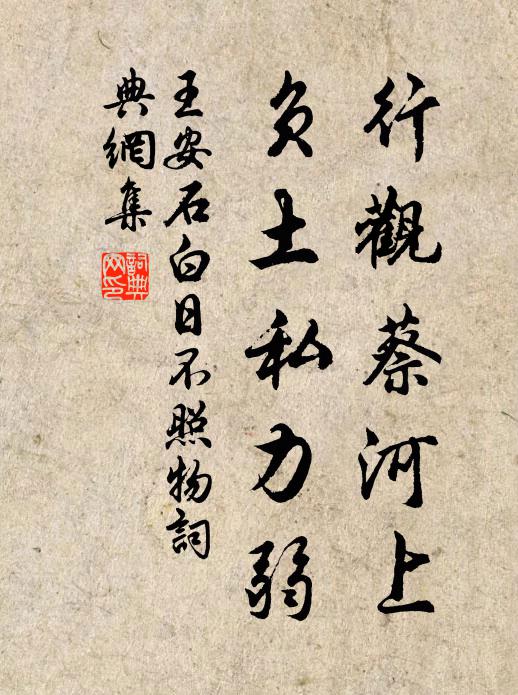 行觀蔡河上
負土私力弱
王安石白日不照物詞
典網集
詞典網印